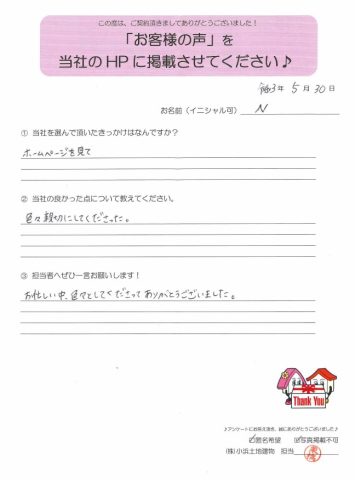 この度は、ご契約頂きましてありがとうございました！
「お客様の声」を
当社のHPに掲載させてください♪
令和3年 5月 30日
お名前（イニシャル可） N
① 当社を選んで頂いたきっかけはなんですか？
ホームページを見て
② 当社の良かった点について教えてください。
色々親切にしてくださった。
③ 担当者へぜひ一言お願いします！
お忙しい中、色々としてくださってありがとうございました。
Thank You
♪アンケートにお答え頂き、誠にありがとうございました♪
☑匿名希望 ☑写真掲載不可
(株)小浜土地建物 担当